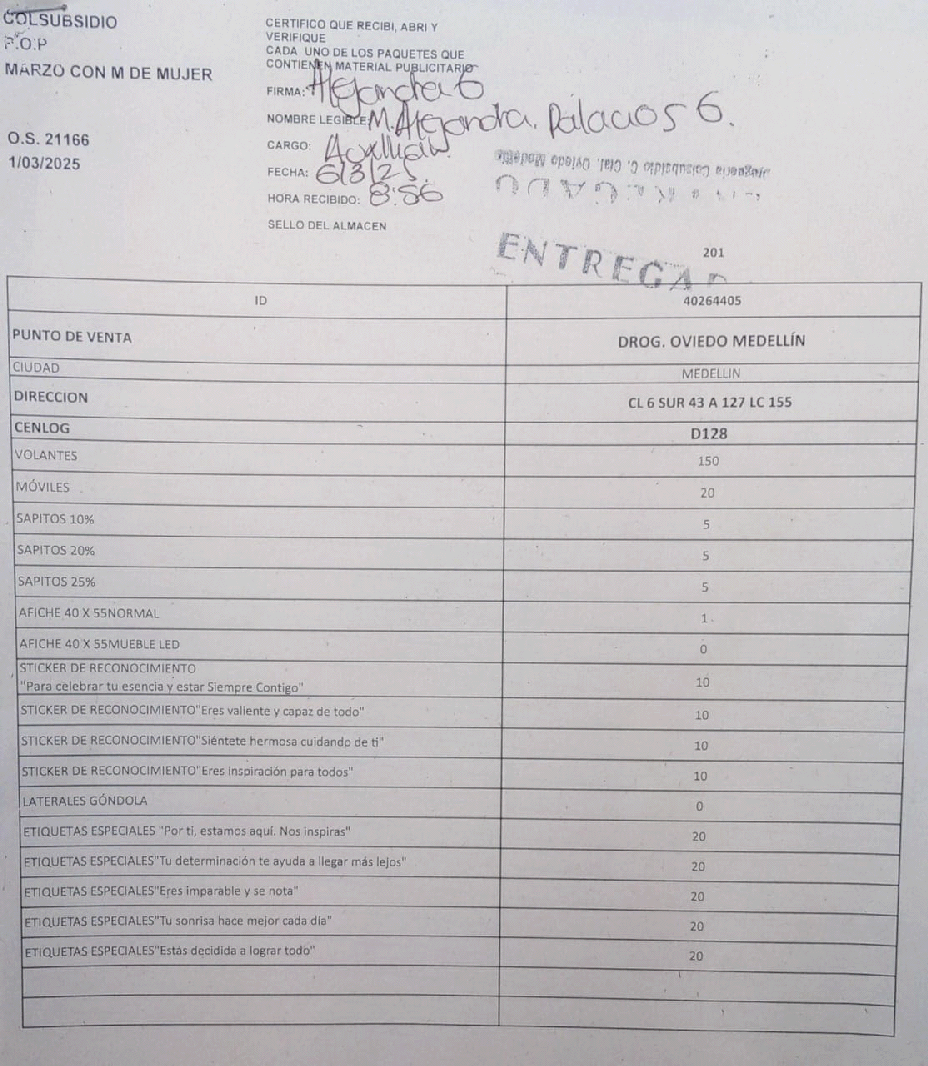 COLSUBSIDIO
P.O.P
MARZO CON M DE MUJER
O.S. 21166
1/03/2025
CERTIFICO QUE RECIBI, ABRI Y
VERIFIQUE
CADA UNO DE LOS PAQUETES QUE
CONTIENEN MATERIAL PUBLICITARIO
FIRMA: Alejandra G
NOMBRE LEGIBLE M. Alejandra. Palacios G.
CARGO: Auxiliar.
FECHA: 6/3/25.
HORA RECIBIDO: 8:56
SELLO DEL ALMACEN
Colsubsidio C. Cial. Oviedo Medellín
ENTREGAD
201
ID 40264405
PUNTO DE VENTA DROG. OVIEDO MEDELLÍN
CIUDAD MEDELLIN
DIRECCION CL 6 SUR 43 A 127 LC 155
CENLOG D128
VOLANTES 150
MÓVILES 20
SAPITOS 10% 5
SAPITOS 20% 5
SAPITOS 25% 5
AFICHE 40 X 55NORMAL 1
AFICHE 40 X 55MUEBLE LED 0
STICKER DE RECONOCIMIENTO
"Para celebrar tu esencia y estar Siempre Contigo" 10
STICKER DE RECONOCIMIENTO"Eres valiente y capaz de todo" 10
STICKER DE RECONOCIMIENTO"Siéntete hermosa cuidando de ti" 10
STICKER DE RECONOCIMIENTO"Eres Inspiración para todos" 10
LATERALES GÓNDOLA 0
ETIQUETAS ESPECIALES "Por ti, estamos aquí. Nos inspiras" 20
ETIQUETAS ESPECIALES"Tu determinación te ayuda a llegar más lejos" 20
ETIQUETAS ESPECIALES"Eres imparable y se nota" 20
ETIQUETAS ESPECIALES"Tu sonrisa hace mejor cada día" 20
ETIQUETAS ESPECIALES"Estás decidida a lograr todo" 20